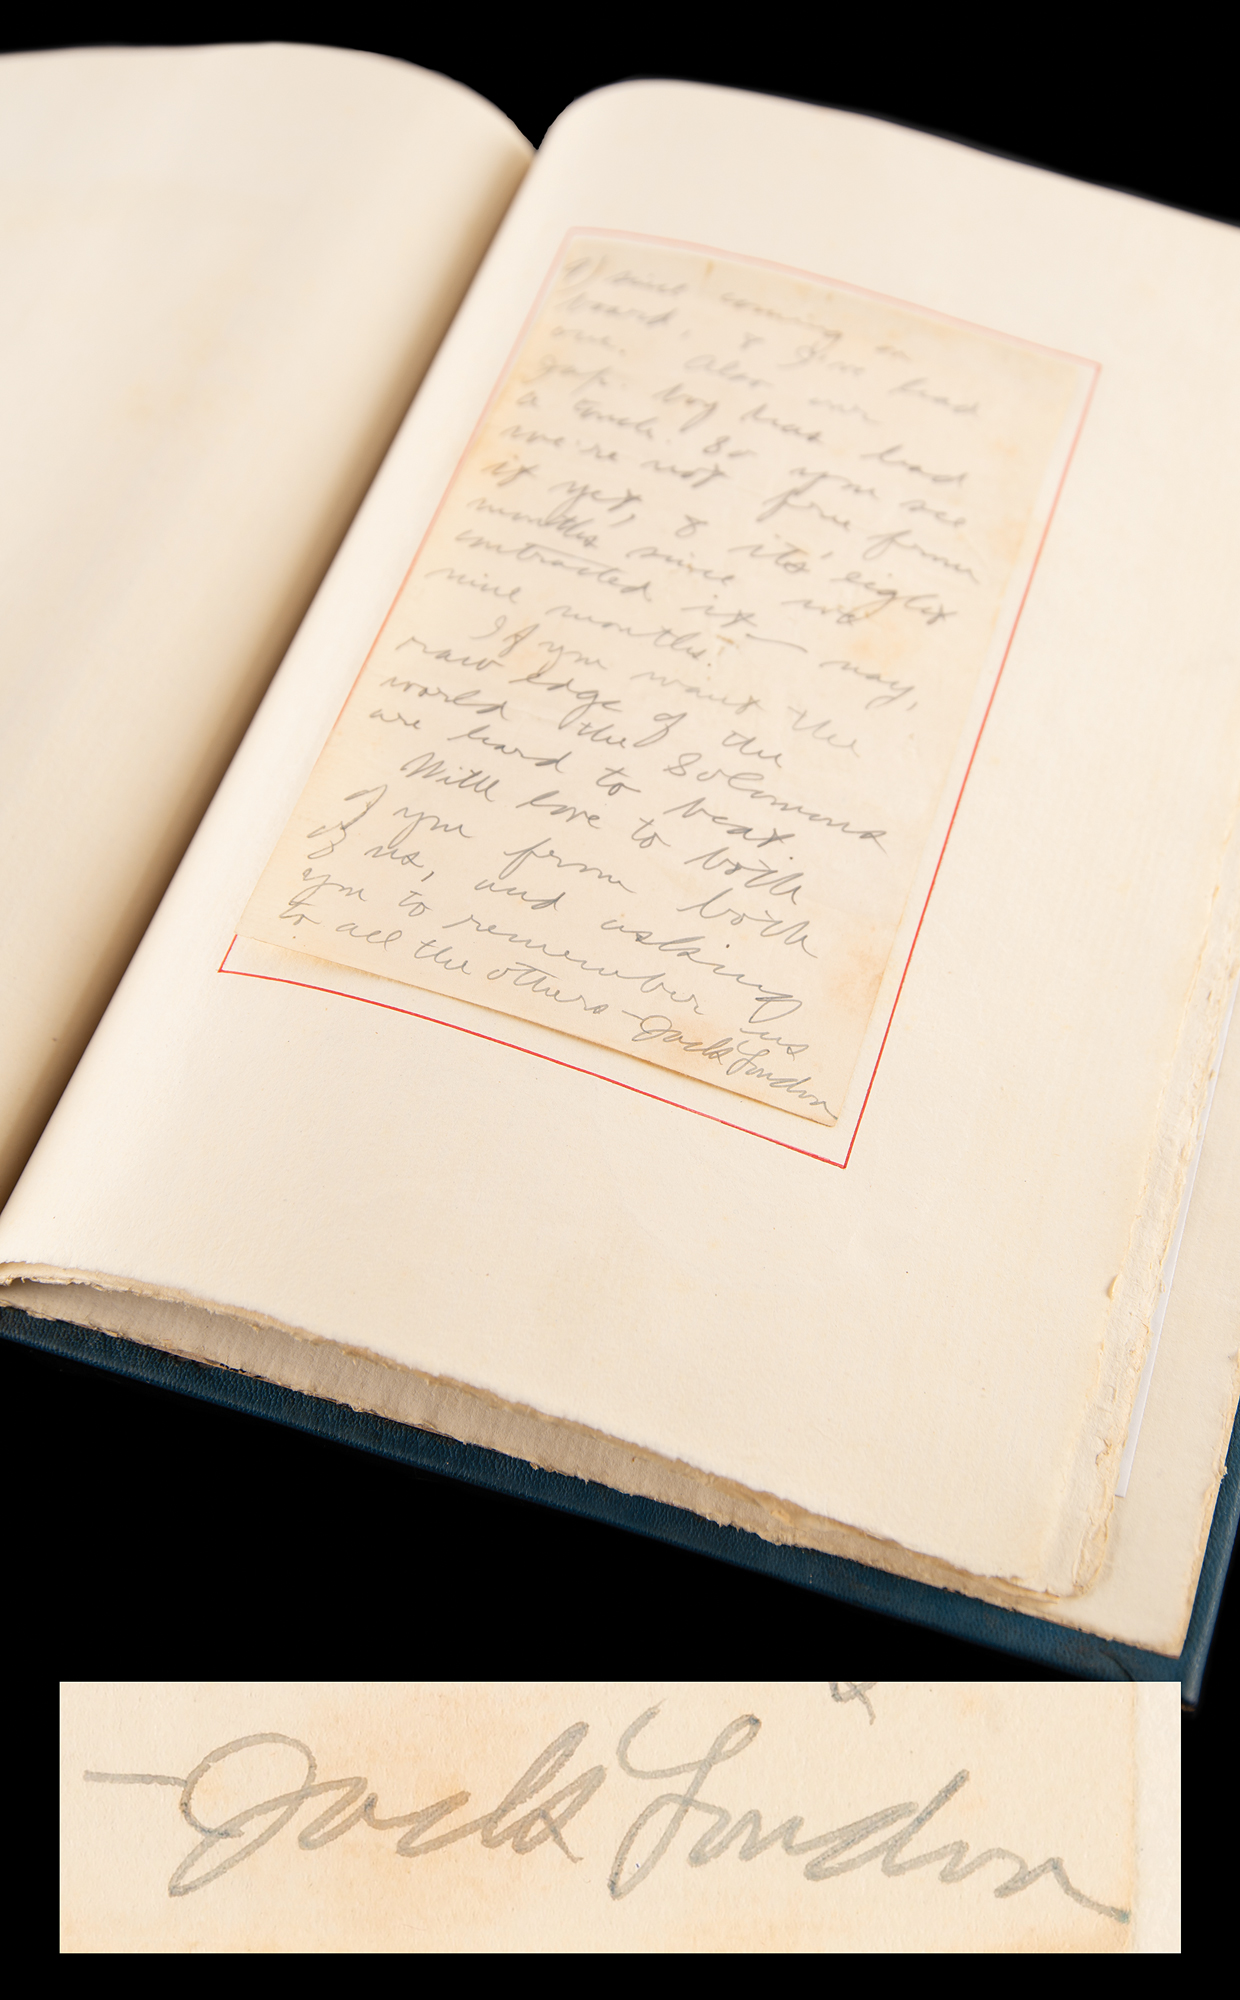 9) since coming on
board, & I've had
one. Also our
Jap. boy has had
a touch. So you see
we're not free from
it yet, & it's eight
months since we
contracted it — nay,
nine months.
If you want the
raw edge of the
world the Solomons
are hard to beat.
With love to both
of you from both
of us, and asking
you to remember us
to all the others —Jack London
—Jack London